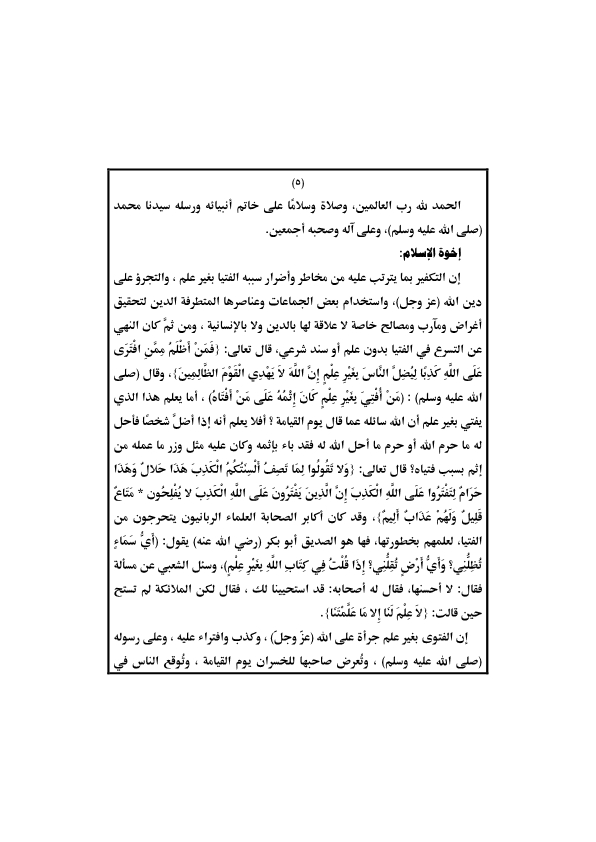 (٥)
الحمد لله رب العالمين، وصلاة وسلامًا على خاتم أنبيائه ورسله سيدنا محمد
(صلى الله عليه وسلم)، وعلى آله وصحبه أجمعين.
إخوة الإسلام:
إن التكفير بما يترتب عليه من مخاطر وأضرار سببه الفتيا بغير علم ، والتجرؤ على
دين الله (عز وجل)، واستخدام بعض الجماعات وعناصرها المتطرفة الدين لتحقيق
أغراض ومآرب ومصالح خاصة لا علاقة لها بالدين ولا بالإنسانية ، ومن ثمَّ كان النهي
عن التسرع في الفتيا بدون علم أو سند شرعي، قال تعالى: {فَمَنْ أَظْلَمُ مِمَّنِ افْتَرَى
عَلَى اللَّهِ كَذِبًا لِيُضِلَّ النَّاسَ بِغَيْرِ عِلْمٍ إِنَّ اللَّهَ لَا يَهْدِي الْقَوْمَ الظَّالِمِينَ}، وقال (صلى
الله عليه وسلم) : (مَنْ أُفْتِيَ بِغَيْرِ عِلْمٍ كَانَ إِثْمُهُ عَلَى مَنْ أَفْتَاهُ) ، أما يعلم هذا الذي
يفتي بغير علم أن الله سائله عما قال يوم القيامة ؟ أفلا يعلم أنه إذا أضلَّ شخصًا فأحل
له ما حرم الله أو حرم ما أحل الله له فقد باء بإثمه وكان عليه مثل وزر ما عمله من
إثم بسبب فتياه؟ قال تعالى: {وَلَا تَقُولُوا لِمَا تَصِفُ أَلْسِنَتُكُمُ الْكَذِبَ هَذَا حَلَالٌ وَهَذَا
حَرَامٌ لِتَفْتَرُوا عَلَى اللَّهِ الْكَذِبَ إِنَّ الَّذِينَ يَفْتَرُونَ عَلَى اللَّهِ الْكَذِبَ لَا يُفْلِحُون * مَتَاعٌ
قَلِيلٌ وَلَهُمْ عَذَابٌ أَلِيمٌ}، وقد كان أكابر الصحابة العلماء الربانيون يتحرجون من
الفتيا، لعلمهم بخطورتها، فها هو الصديق أبو بكر (رضي الله عنه) يقول: (أَيُّ سَمَاءٍ
تُظِلُّنِي؟ وَأَيُّ أَرْضٍ تُقِلُّنِي؟ إِذَا قُلْتُ فِي كِتَابِ اللَّهِ بِغَيْرِ عِلْمٍ)، وسئل الشعبي عن مسألة
فقال: لا أحسنها، فقال له أصحابه: قد استحيينا لك ، فقال لكن الملائكة لم تستح
حين قالت: {لاَ عِلْمَ لَنَا إِلا مَا عَلَّمْتَنَا}.
إن الفتوى بغير علم جرأة على الله (عزّ وجلّ) ، وكذب وافتراء عليه ، وعلى رسوله
(صلى الله عليه وسلم) ، وتُعرض صاحبها للخسران يوم القيامة ، وتُوقع الناس في